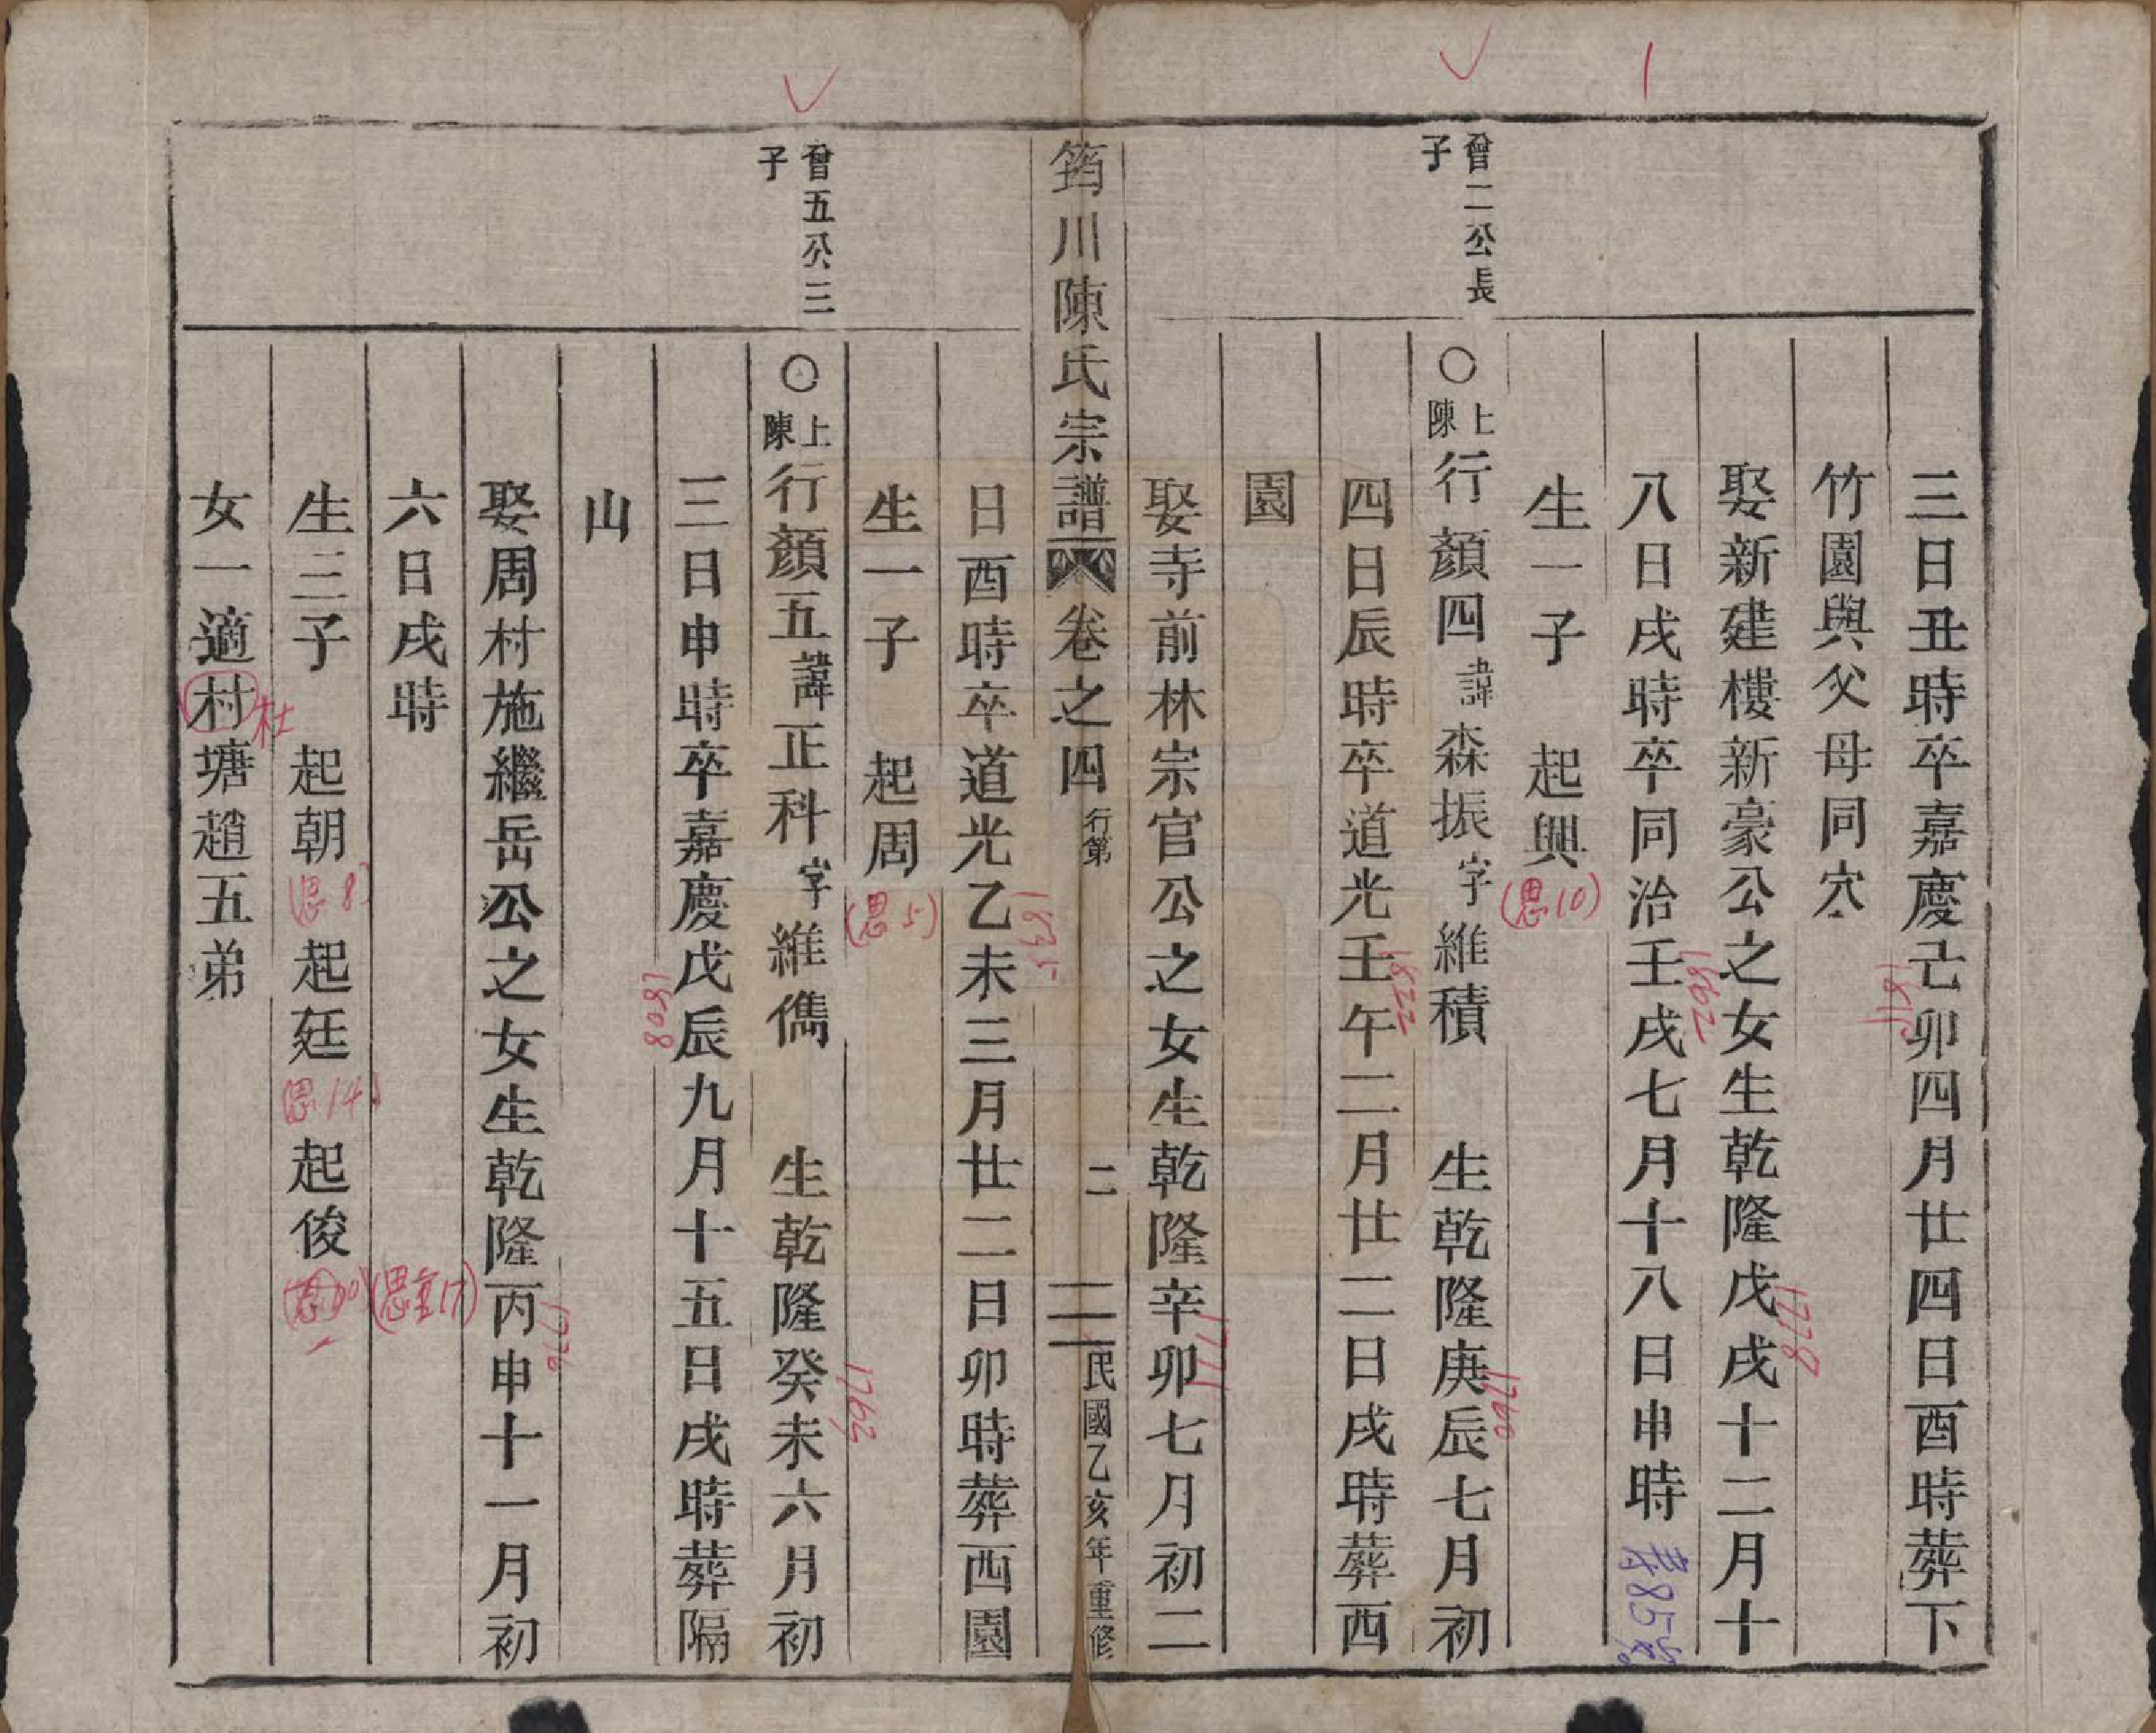 三日丑時卒嘉慶己卯四月廿四日酉時葬下
1815
竹園與父母同穴
娶新建樓新豪公之女生乾隆戊戌十二月十
1778
八日戌時卒同治壬戌七月十八日申時
1862
寿85岁
生一子 起興
(思10)
曾二公長子
○上陳行顏四諱森振字維積 生乾隆庚辰七月初
1760
四日辰時卒道光壬午二月廿二日戌時葬西
1822
園
娶寺前林宗官公之女生乾隆辛卯七月初二
1771
筠川陳氏宗譜 卷之四 行第 二 民國乙亥年重修
日酉時卒道光乙未三月廿二日卯時葬西園
1835
生一子 起周
(思5)
曾五公三子
○上陳行顏五諱正科字維儁 生乾隆癸未六月初
1762
三日申時卒嘉慶戊辰九月十五日戌時葬隔
1808
山
娶周村施繼岳公之女生乾隆丙申十一月初
1776
六日戌時
(思重17)
生三子 起朝 起廷 起俊
(思8)
思14
女一適村塘趙五弟
杜